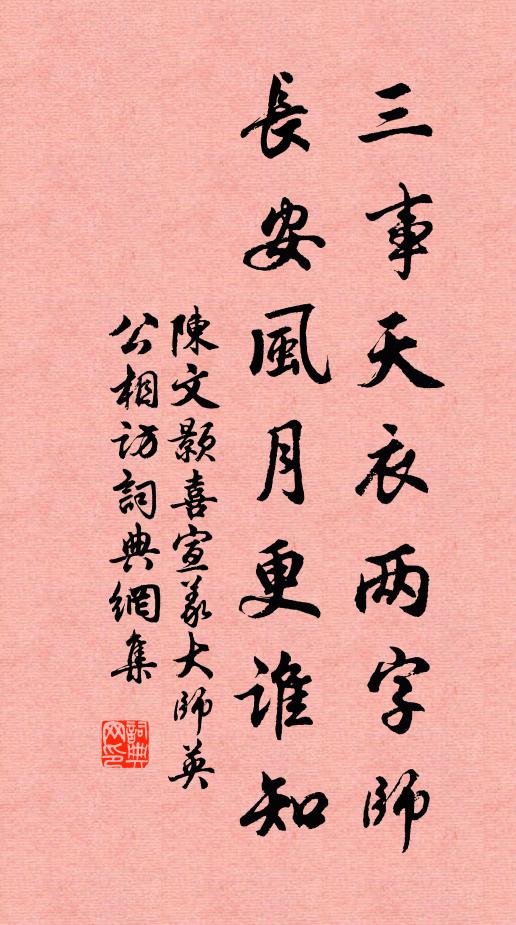 三事天衣两字師
長安風月更誰知
陳文顥喜宣義大師英
公相訪詞典網集
詞典
网印